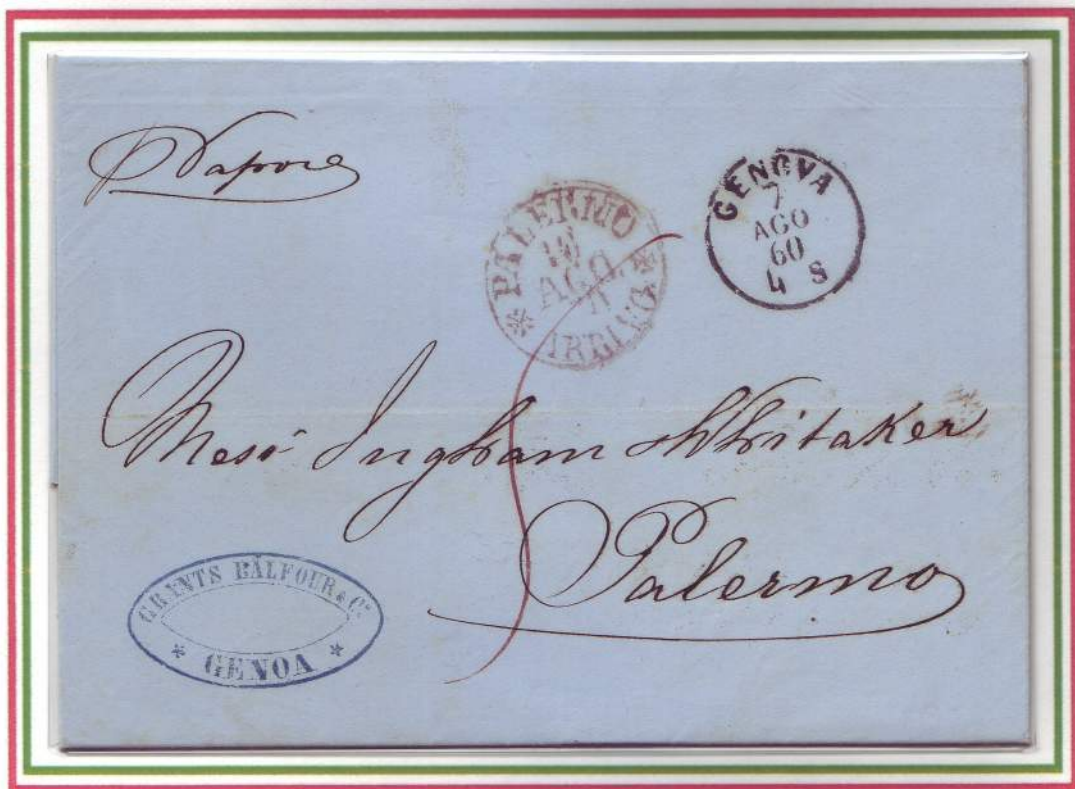 p Vapore
PALERMO
10
AGO
ARRIVO
GENOVA
7
AGO
60
4 S
Mess Ingham Whitaker
Palermo
GRANTS BALFOUR & Co
GENOA